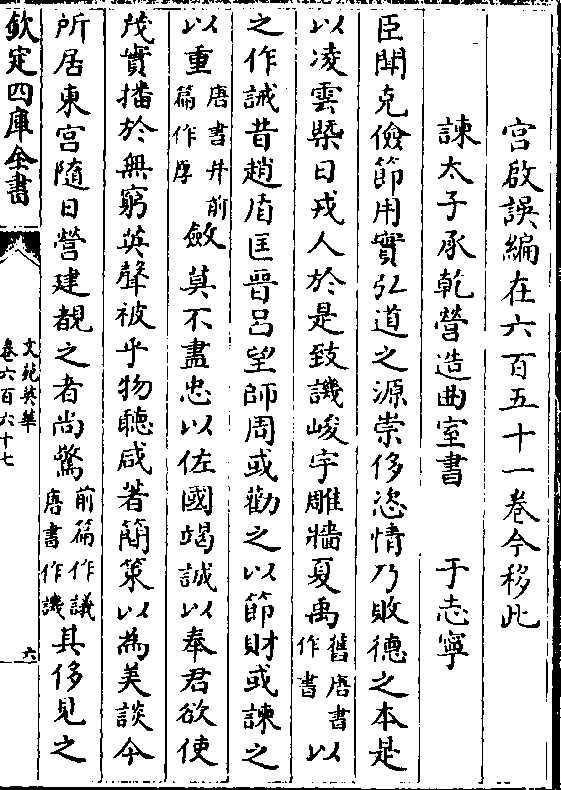 宫啟誤編在六百五十一卷今移此
諫太子承乾營造曲室書　　于志寧
臣聞克儉節用實弘道之源崇侈恣情乃敗德之本是
以凌雲槩日戎人於是致譏峻宇雕牆夏禹舊唐書作書以
之作誡昔趙盾匡晉吕望師周或勸之以節財或諫之
以重唐書并前篇作厚斂莫不盡忠以佐國竭誠以奉君欲使
茂實播於無窮英聲被乎物聽咸著簡策以為美談今
所居東宫隨日營建覩之者尚驚前篇作議唐書作譏其侈見之
欽定四庫全書
文苑英華
卷六百六十七
六